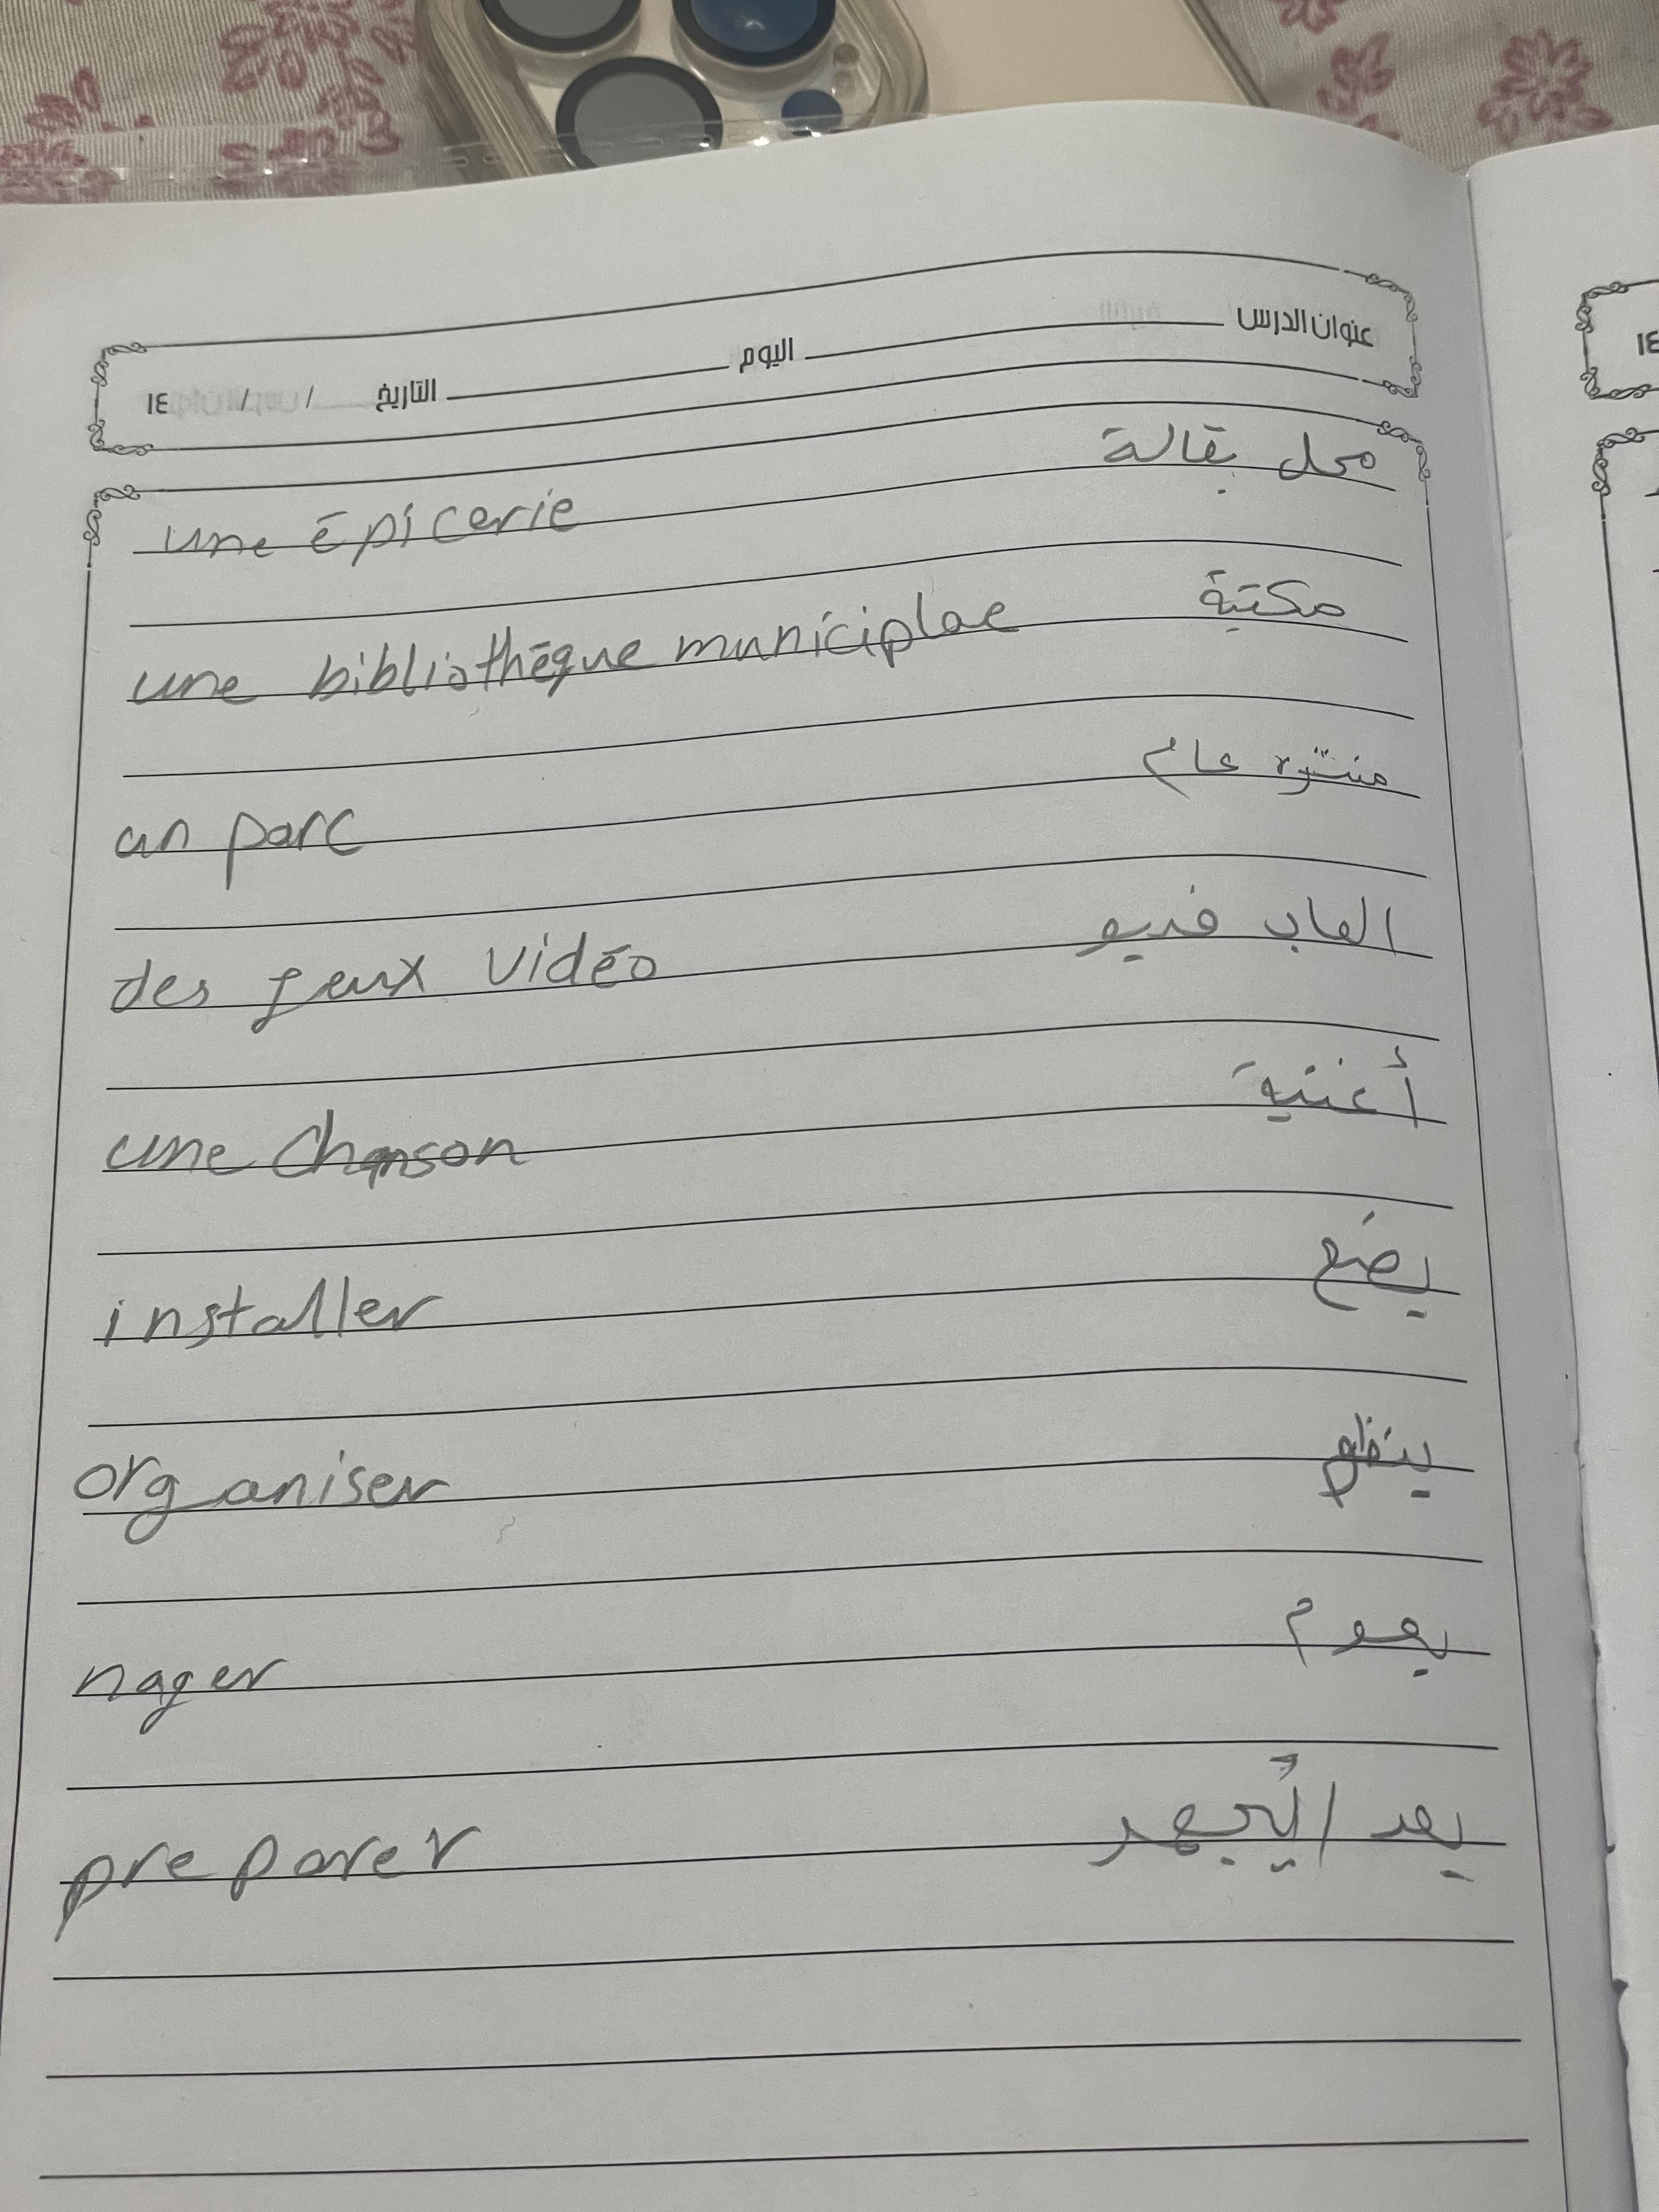 عنوان الدرس اليوم التاريخ / / ١٤
محل بقالة
une épicerie
مكتبة
une bibliothéque municiplae
منتزه عام
un parc
العاب فديو
des jeux vidéo
أغنية
une chanson
يضع
installer
ينظم
organiser
يعوم
nager
يعد / يُجهر
preparer